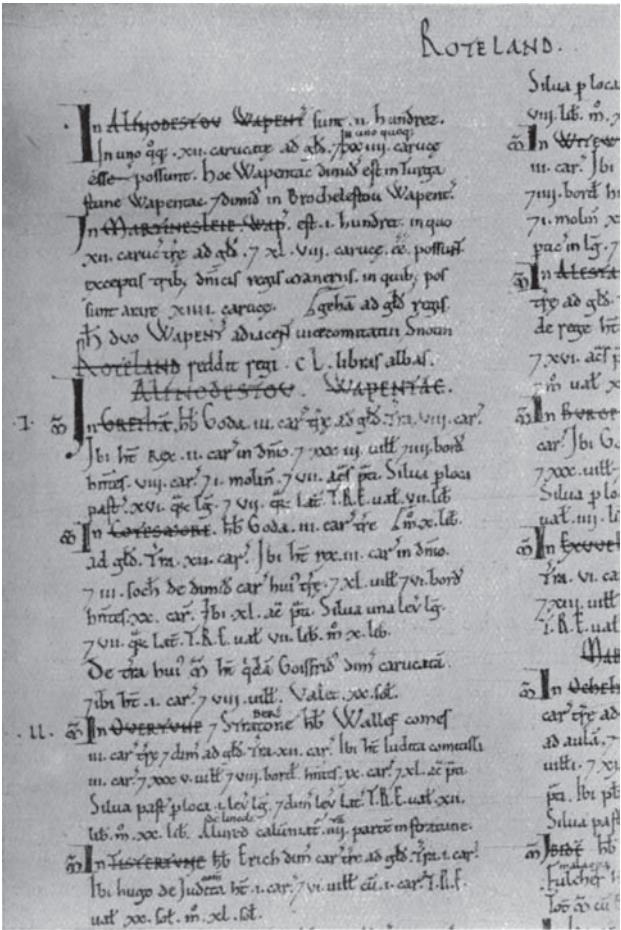 ROTELAND.
In ALFNODESTOV WAPENT sunt .II. hundrez.
In uno qq; .XII. carucatę ad glđ. 7 XXIIII. carucę
in uno quoq;
esse possunt. Hoc Wapentac dimiđ est in Turga
stune Wapentac 7 dimiđ in Brochelestou Wapent.
In MARTINESLEIE WAP. est .I. hundret. in quo
XII. caruc tr̄e ad glđ. 7 XL.VIII. carucę. ēē possunt
exceptis trib; dn̄icis regis maneriis. in quib; pos
sunt arare XIIII. carucę. geld̄a ad glđ regis.
H̄ duo WAPENT adiaceɴ̄t uicecomitatui Snotin
ROTELAND reddit regi .CL. libras albas.
ALFNODESTOV. WAPENTAC.
.I. m̄ In GRETHA, hb̄ Goda .III. car̄ tr̄e ad glđ. Tr̄a .VIII. car̄.
Ibi ht̄ rex .II. car̄ in dn̄io. 7 XXX III. uilł 7 IIII. borđ
hn̄tes .VIII. car̄. 7 I. molin̄. 7 VII. ac̄s p̄ti. Silua p loca
past̄. XVI. qr̄ lḡ. 7 VII. qr̄ lat̄. T.R.E. ual̄ .VII. lib̄
m̄ In COTESMORE. hb̄ Goda .III. car̄ tr̄e m̄ X. lib̄.
ad glđ. Tr̄a .XII. car̄. Ibi ht̄ rex .III. car̄ in dn̄io.
7 III. soch̄ de dimiđ car̄ hui' tr̄e. 7 XL. uilł 7 VI. borđ
hn̄tes .XX. car̄. Ibi .XL. ac̄ p̄ti. Silua una leu̅ lḡ.
7 VII. qr̄ lat̄. T.R.E. ual̄ VII. lib̄. m̄ X. lib̄.
De tr̄a hui' m̄ ht̄ qđā Goisfriđ dim̄ carucatā.
7 ibi ht̄ .I. car̄. 7 VIII. uilł. Valet .XX. sol̄.
.II. m̄ In OVERTVNE 7 STRATONE hb̄ Wallef comes
.III. car̄ tr̄e 7 dim̄ ad glđ. Tr̄a .XII. car̄. Ibi ht̄ Iudita comitissa
.III. car̄. 7 XXX V. uilł 7 VIII. borđ. hn̄tes .IX. car̄. 7 XL. ac̄ p̄ti
Silua past̄ p loca .I. leu̅ lḡ. 7 dim̄ leu̅ lat̄. T.R.E. ual̄ .XII.
de lincole
lib̄. m̄ .XX. lib̄. Alured calūniat̄ .IIII. partem in stratune.
m̄ In TISTERTVNE hb̄ Erich dim̄ car̄ tr̄e ad glđ. Tr̄a .I. car̄.
Ibi hugo de Iudita ht̄ .I. car̄. 7 VI. uilł cū .I. car̄. T.R.E.
ual̄ XX. sol̄. m̄ .XL. sol̄.
Silua p loca
VIII. lib̄. m̄ .X
m̄ In WITEW
III. car̄. Ibi
7 IIII. borđ h
7 I. molin̄ X
past̄ in lḡ. 7
m̄ In ALESTA
tr̄e ad glđ.
de rege ht̄
7 XVI. ac̄s p
m̄ ual̄ X
m̄ In BVRGE
car̄. Ibi Go
7 XXX. uilł
Silua p lo
ual̄ IIII. li
m̄ In EXWE
Tr̄a. VI. ca
7 XIII. uilł
T.R.E. ual̄
MAR
m̄ In OCHEH
car̄ tr̄e ad
ad aulā. 7
uilłi. 7 XI
p̄ti. Ibi pb̄
Silua past̄
m̄ In
Fulcher
Toᵗ m̄ cū